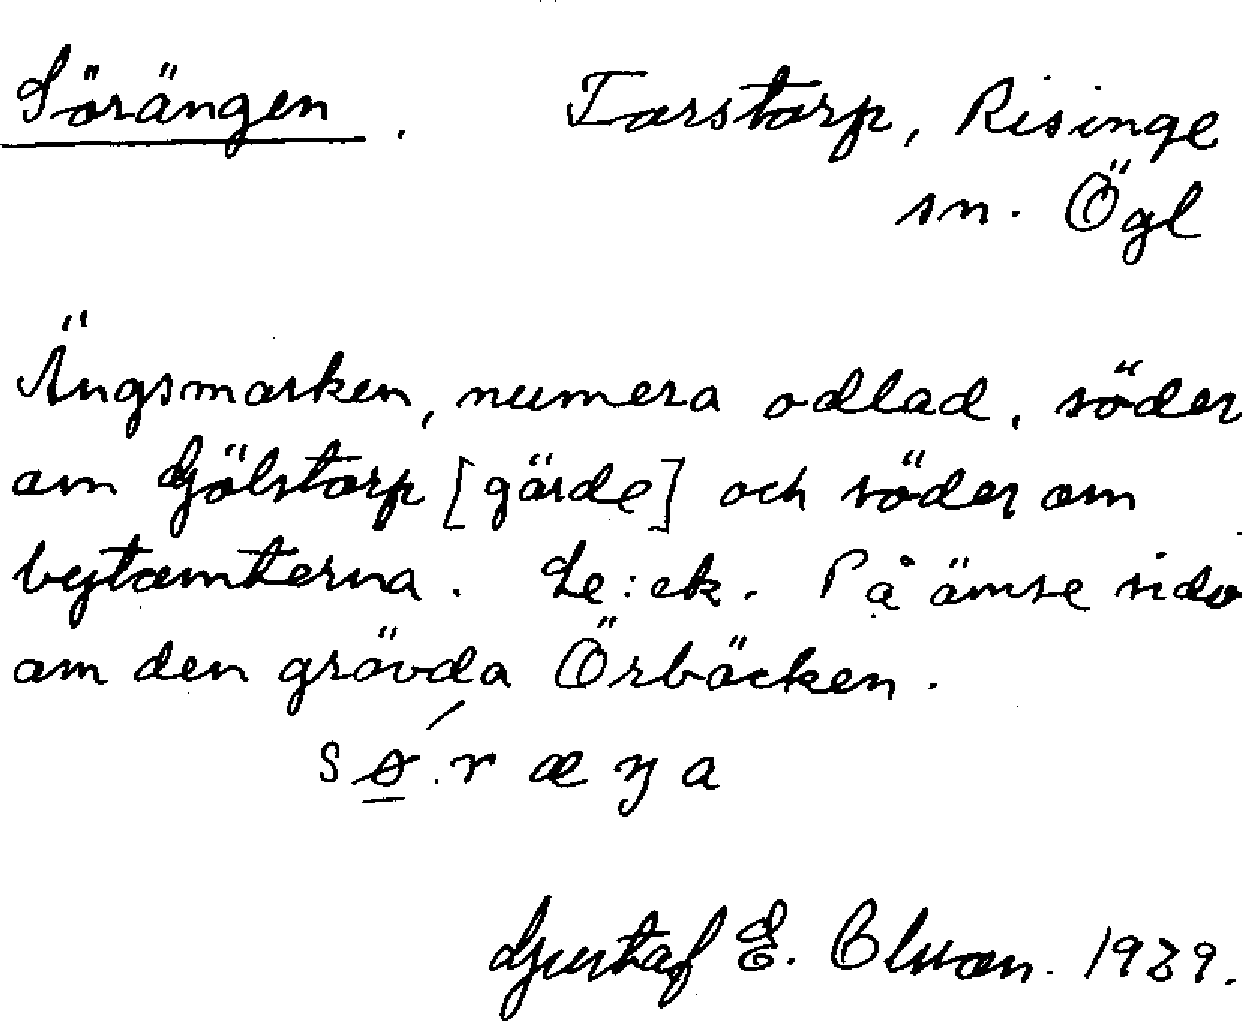 Sörängen. Torstorp, Risinge
sn. Ögl
Ängsmarken, numera odlad, söder
om Gölstorp [gärde] och söder om
bytomterna. Le:ek. På ömse sido
om den grävda Örbäcken.
sǿ̱.r æ ŋ a
Gustaf E. Olsson. 1939.